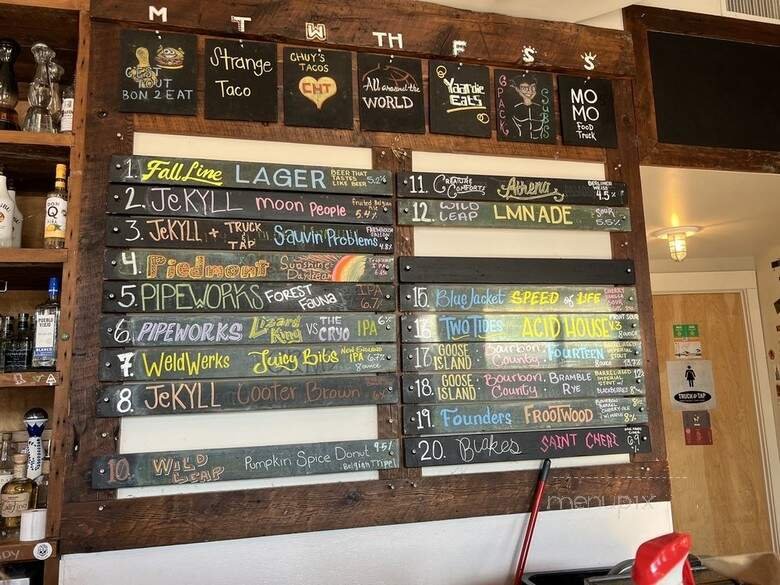 M T W TH F S S
GET OUT BON 2 EAT
Strange
Taco
CHUY'S
TACOS
CHT
All around the
WORLD
Yaardie
Eats
6 PACK SUBS
MO
MO
FOOD
TRUCK
1. Fall Line LAGER BEER THAT TASTES LIKE BEER 5.2%
2. JEKYLL moon People Fruited Belgian 5.4%
3. JEKYLL + TRUCK & TAP Sauvin Problems FARMHOUSE 4.8%
4. Piedmont Sunshine Daydream IPA
5. PIPEWORKS FOREST FAUNA IPA 6.7%
6. PIPEWORKS Lizard King VS THE CRYO IPA 6%
7. WeldWerks Juicy Bits NEW ENGLAND IPA 6.7% 8 OUNCE
8. JEKYLL Cooter Brown 6%
10. WILD LEAP Pumpkin Spice Donut 9.5% Belgian Tripel
11. CREATURE COMFORTS Athena BERLINER WEISS 4.5%
12. WILD LEAP LMNADE SOUR 5.5%
15. Blue Jacket SPEED of LIFE
16. TWO TIDES ACID HOUSE V.3 8 OUNCE
17. GOOSE ISLAND Bourbon County FOURTEEN
18. GOOSE ISLAND Bourbon County BRAMBLE RYE BARREL-AGED IMPERIAL STOUT W/ BLACKBERRIES
19. Founders FROOTWOOD CHERRY ALE W/ MAPLE 8%
20. Blakes SAINT CHERI
TRUCK & TAP
menupix